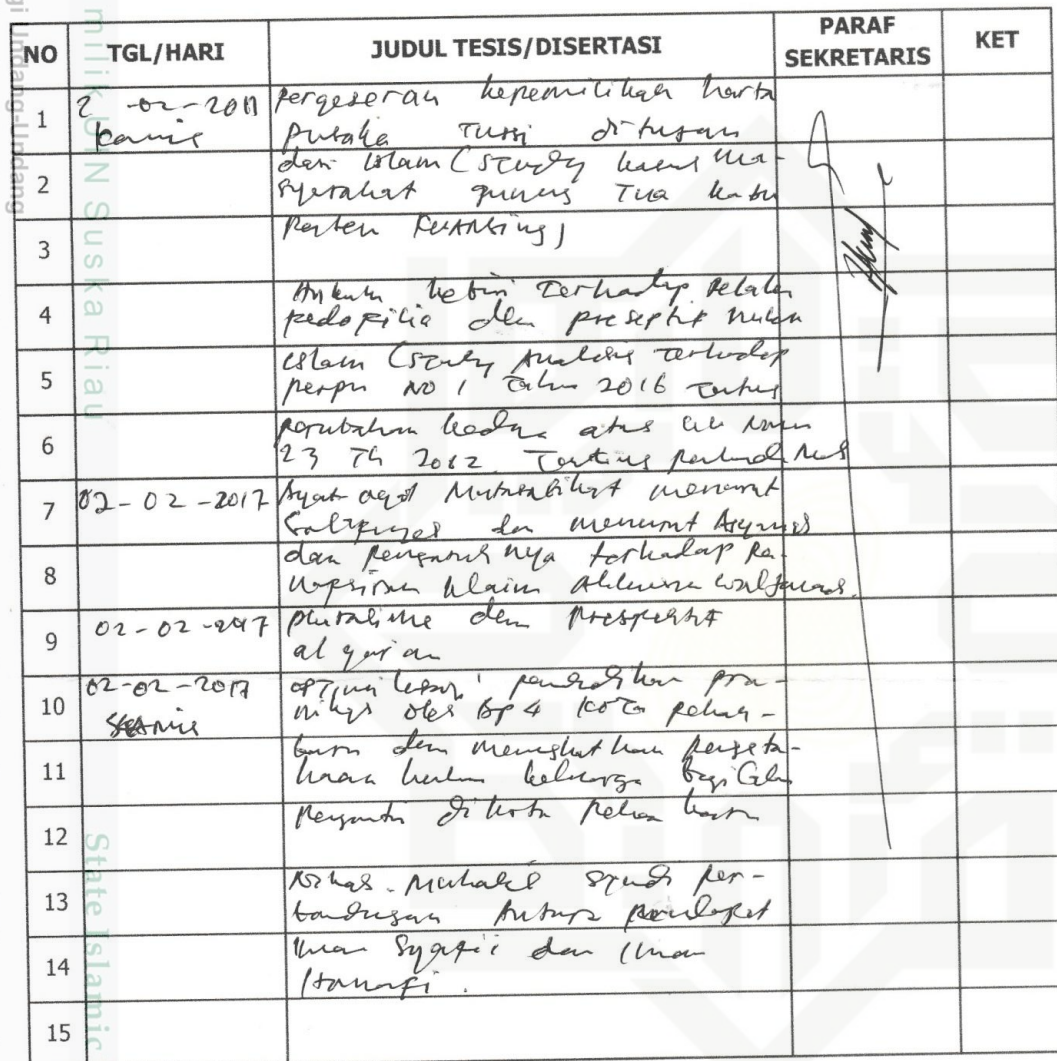 NO TGL/HARI JUDUL TESIS/DISERTASI PARAF SEKRETARIS KET
1 2-02-2017 pergeseran kepemilikan harta
kamis pusaka Tinggi ditinjau
2 dari Islam (study kasus ma-
syarakat gunung Tua kabu
3 paten Kuansing)
4 Hukum kebiri Terhadap pelaku
pedofilia dlm preseptif hukum
5 islam (study Analisis terhadap
perpu NO 1 Tahun 2016 Tentang
6 perubahan kedua atas UU
23 Th 2002 Tentang
7 02-02-2017 Ayat-ayat Mutasabihat menurut
dan menurut
8 dan pengaruhnya terhadap pe-
9 02-02-2017 pluralime dlm Prespektif
al qur'an
10 02-02-2017 optimalisasi pendidikan pra-
Kamis nikah oleh BP4 KOTA pekan-
11 baru dlm meningkatkan pengeta-
huan hukum keluarga bagi Calon
12 Pengantin di kota pekan baru
13 Nikah Muhalil study per-
bandingan Antara pendapat
14 Imam Syafii dan Imam
Hanafi.
15
milik UIN Suska Riau
State Islamic
Undang-Undang